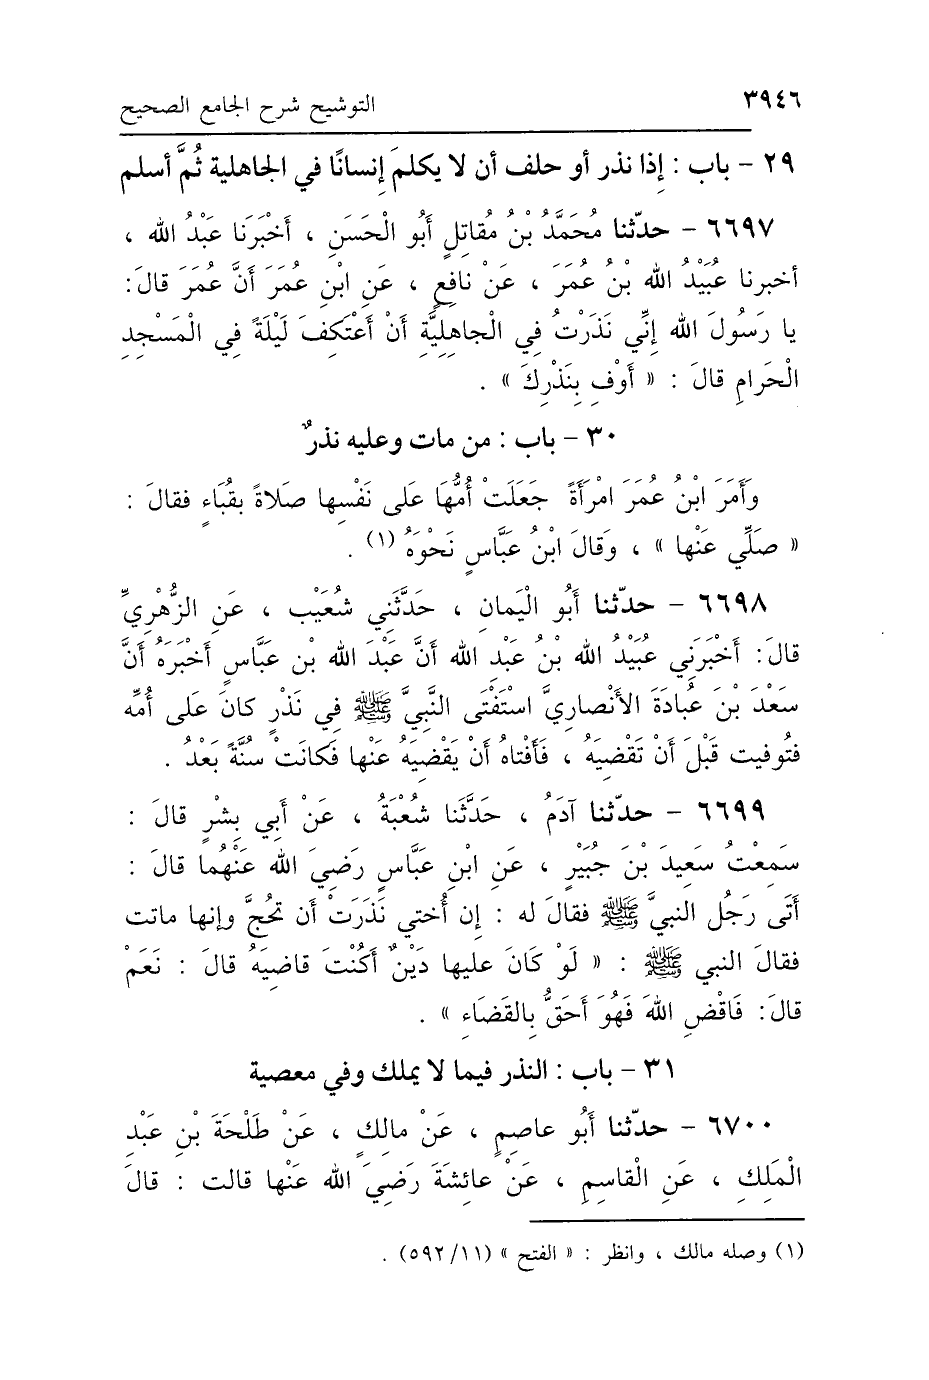 ٣٩٤٦ التوشيح شرح الجامع الصحيح
٢٩ - باب : إذا نذر أو حلف أن لا يكلمَ إنسانًا في الجاهلية ثُمَّ أسلم
٦٦٩٧ - حدّثنا مُحَمَّدُ بْنُ مُقاتلٍ أَبُو الْحَسَنِ ، أَخْبَرَنا عَبْدُ الله ،
أخبرنا عُبَيْدُ الله بْنُ عُمَرَ ، عَنْ نافِعٍ ، عَنِ ابْنِ عُمَرَ أَنَّ عُمَرَ قالَ:
يا رَسُولَ الله إنِّي نَذَرْتُ فِي الْجاهِلِيَّةِ أَنْ أَعْتَكِفَ لَيْلَةً فِي الْمَسْجِدِ
الْحَرامِ قالَ : « أَوْفِ بِنَذْرِكَ » .
٣٠ - باب : من مات وعليه نذرٌ
وَأَمَرَ ابْنُ عُمَرَ امْرَأَةً جَعَلَتْ أُمُّهَا عَلى نَفْسِها صَلاةً بقُبَاءٍ فقالَ :
« صَلِّي عَنْها » ، وَقالَ ابْنُ عَبَّاسٍ نَحْوَهُ (١) .
٦٦٩٨ - حدّثنا أَبُو الْيَمانِ ، حَدَّثَنِي شُعَيْب ، عَنِ الزُّهْرِيِّ
قالَ: أَخْبَرَنِي عُبَيْدُ الله بْنُ عَبْدِ الله أَنَّ عَبْدَ الله بن عَبَّاسٍ أَخْبَرَهُ أَنَّ
سَعْدَ بْنَ عُبادَةَ الأَنْصارِيَّ اسْتَفْتَى النَّبِيَّ ﷺ فِي نَذْرٍ كانَ عَلى أُمِّه
فتُوفيت قَبْلَ أَنْ تَقْضِيَهُ ، فَأَفْتاهُ أَنْ يَقْضِيَهُ عَنْها فَكانَتْ سُنَّةً بَعْدُ .
٦٦٩٩ - حدّثنا آدَمُ ، حَدَّثَنا شُعْبَةُ ، عَنْ أَبِي بِشْرٍ قالَ :
سَمِعْتُ سَعِيدَ بْنَ جُبَيْرٍ ، عَنِ ابْنِ عَبَّاسٍ رَضِيَ الله عَنْهُما قالَ :
أَتَى رَجُل النبيَّ ﷺ فقالَ له : إن أُختي نَذَرَتْ أن تَحُجَّ وإنها ماتت
فقالَ النبي ﷺ : « لَوْ كَانَ عليها دَيْنٌ أَكُنْتَ قاضِيَهُ قالَ : نَعَمْ
قالَ: فَاقْضِ اللهَ فَهُوَ أَحَقُّ بِالقَضَاءِ » .
٣١ - باب : النذر فيما لا يملك وفي معصية
٦٧٠٠ - حدّثنا أَبُو عاصِمٍ ، عَنْ مالِكٍ ، عَنْ طَلْحَةَ بْنِ عَبْدِ
الْمَلِكِ ، عَنِ الْقاسِمِ ، عَنْ عائِشَةَ رَضِيَ الله عَنْها قالت : قالَ
(١) وصله مالك ، وانظر : « الفتح » (١١/ ٥٩٢) .